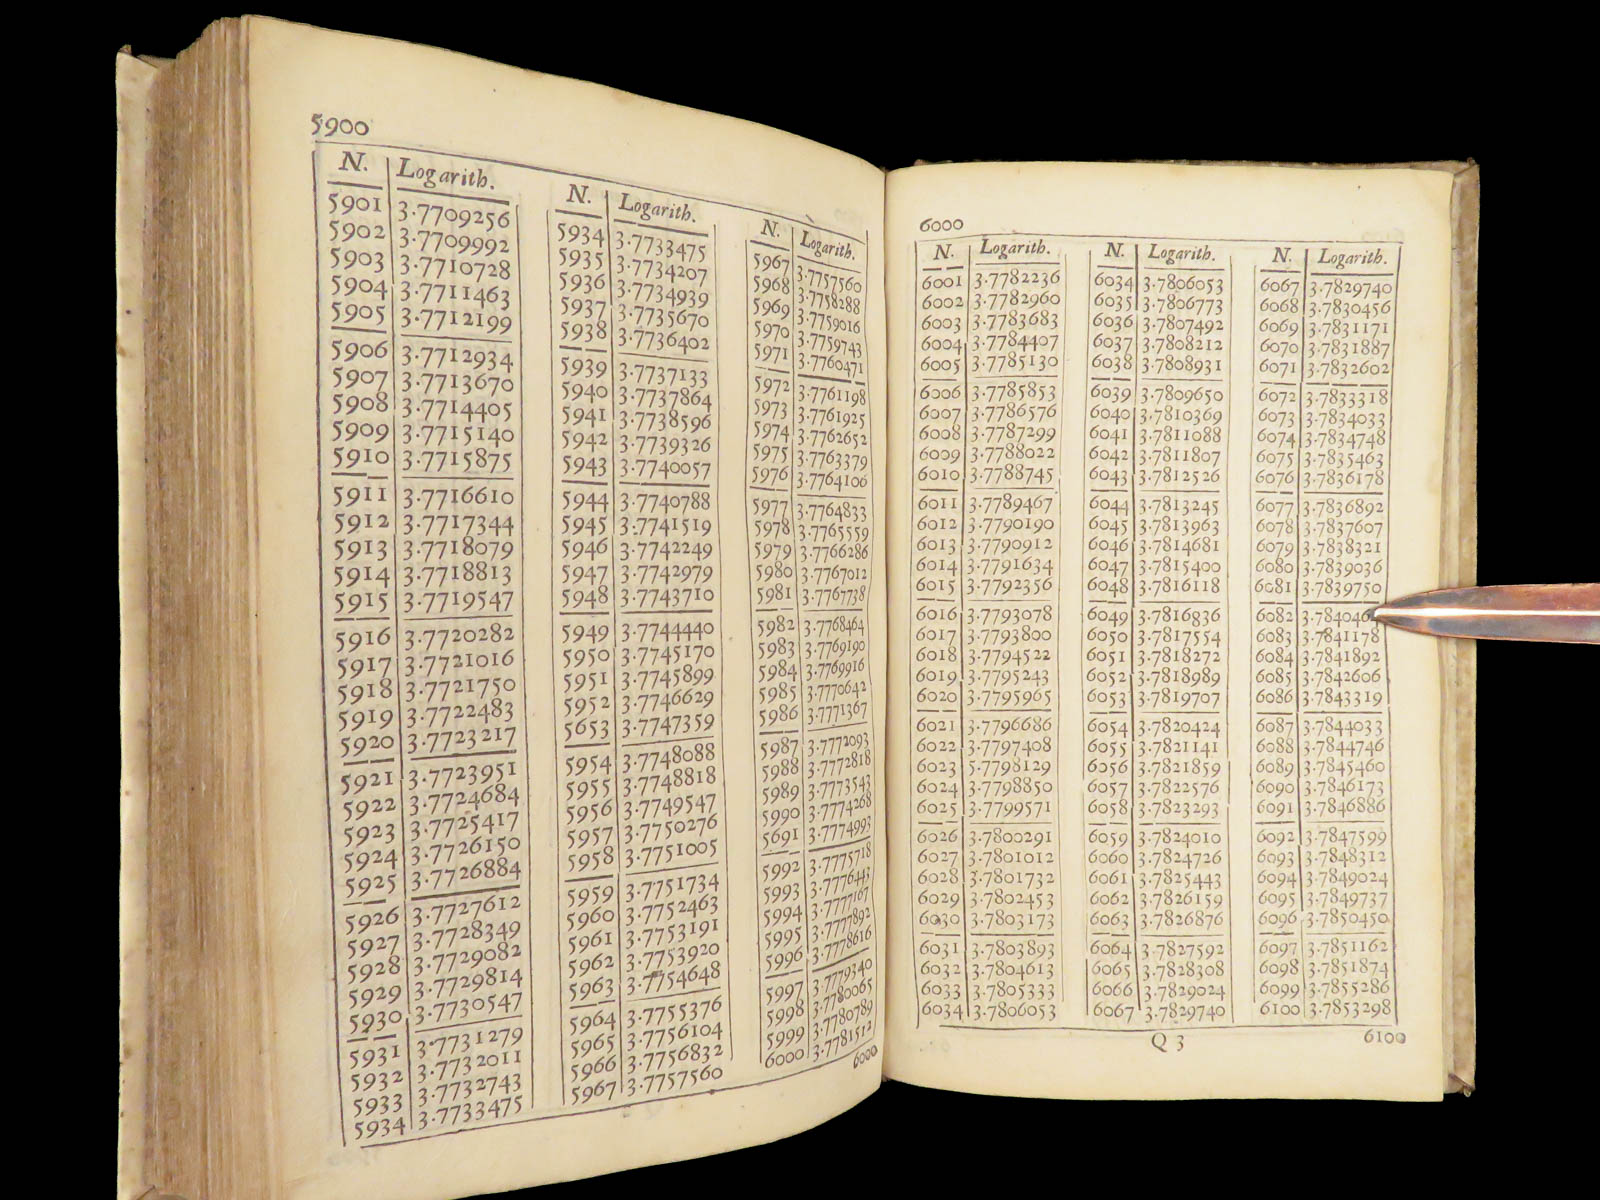 5900
N. Logarith.
5901 3.7709256
5902 3.7709992
5903 3.7710728
5904 3.7711463
5905 3.7712199
5906 3.7712934
5907 3.7713670
5908 3.7714405
5909 3.7715140
5910 3.7715875
5911 3.7716610
5912 3.7717344
5913 3.7718079
5914 3.7718813
5915 3.7719547
5916 3.7720282
5917 3.7721016
5918 3.7721750
5919 3.7722483
5920 3.7723217
5921 3.7723951
5922 3.7724684
5923 3.7725417
5924 3.7726150
5925 3.7726884
5926 3.7727612
5927 3.7728349
5928 3.7729082
5929 3.7729814
5930 3.7730547
5931 3.7731279
5932 3.7732011
5933 3.7732743
5934 3.7733475
N. Logarith.
5934 3.7733475
5935 3.7734207
5936 3.7734939
5937 3.7735670
5938 3.7736402
5939 3.7737133
5940 3.7737864
5941 3.7738596
5942 3.7739326
5943 3.7740057
5944 3.7740788
5945 3.7741519
5946 3.7742249
5947 3.7742979
5948 3.7743710
5949 3.7744440
5950 3.7745170
5951 3.7745899
5952 3.7746629
5653 3.7747359
5954 3.7748088
5955 3.7748818
5956 3.7749547
5957 3.7750276
5958 3.7751005
5959 3.7751734
5960 3.7752463
5961 3.7753191
5962 3.7753920
5963 3.7754648
5964 3.7755376
5965 3.7756104
5966 3.7756832
5967 3.7757560
N. Logarith.
5967 3.7757560
5968 3.7758288
5969 3.7759016
5970 3.7759743
5971 3.7760471
5972 3.7761198
5973 3.7761925
5974 3.7762652
5975 3.7763379
5976 3.7764106
5977 3.7764833
5978 3.7765559
5979 3.7766286
5980 3.7767012
5981 3.7767738
5982 3.7768464
5983 3.7769190
5984 3.7769916
5985 3.7770642
5986 3.7771367
5987 3.7772093
5988 3.7772818
5989 3.7773543
5990 3.7774268
5691 3.7774993
5992 3.7775718
5993 3.7776443
5994 3.7777167
5995 3.7777892
5996 3.7778616
5997 3.7779340
5998 3.7780065
5999 3.7780789
6000 3.7781512
6000
6000
N. Logarith.
6001 3.7782236
6002 3.7782960
6003 3.7783683
6004 3.7784407
6005 3.7785130
6006 3.7785853
6007 3.7786576
6008 3.7787299
6009 3.7788022
6010 3.7788745
6011 3.7789467
6012 3.7790190
6013 3.7790912
6014 3.7791634
6015 3.7792356
6016 3.7793078
6017 3.7793800
6018 3.7794522
6019 3.7795243
6020 3.7795965
6021 3.7796686
6022 3.7797408
6023 5.7798129
6024 3.7798850
6025 3.7799571
6026 3.7800291
6027 3.7801012
6028 3.7801732
6029 3.7802453
6030 3.7803173
6031 3.7803893
6032 3.7804613
6033 3.7805333
6034 3.7806053
N. Logarith.
6034 3.7806053
6035 3.7806773
6036 3.7807492
6037 3.7808212
6038 3.7808931
6039 3.7809650
6040 3.7810369
6041 3.7811088
6042 3.7811807
6043 3.7812526
6044 3.7813245
6045 3.7813963
6046 3.7814681
6047 3.7815400
6048 3.7816118
6049 3.7816836
6050 3.7817554
6051 3.7818272
6052 3.7818989
6053 3.7819707
6054 3.7820424
6055 3.7821141
6056 3.7821859
6057 3.7822576
6058 3.7823293
6059 3.7824010
6060 3.7824726
6061 3.7825443
6062 3.7826159
6063 3.7826876
6064 3.7827592
6065 3.7828308
6066 3.7829024
6067 3.7829740
N. Logarith.
6067 3.7829740
6068 3.7830456
6069 3.7831171
6070 3.7831887
6071 3.7832602
6072 3.7833318
6073 3.7834033
6074 3.7834748
6075 3.7835463
6076 3.7836178
6077 3.7836892
6078 3.7837607
6079 3.7838321
6080 3.7839036
6081 3.7839750
6082 3.7840464
6083 3.7841178
6084 3.7841892
6085 3.7842606
6086 3.7843319
6087 3.7844033
6088 3.7844746
6089 3.7845460
6090 3.7846173
6091 3.7846886
6092 3.7847599
6093 3.7848312
6094 3.7849024
6095 3.7849737
6096 3.7850450
6097 3.7851162
6098 3.7851874
6099 3.7855286
6100 3.7853298
Q 3
6100